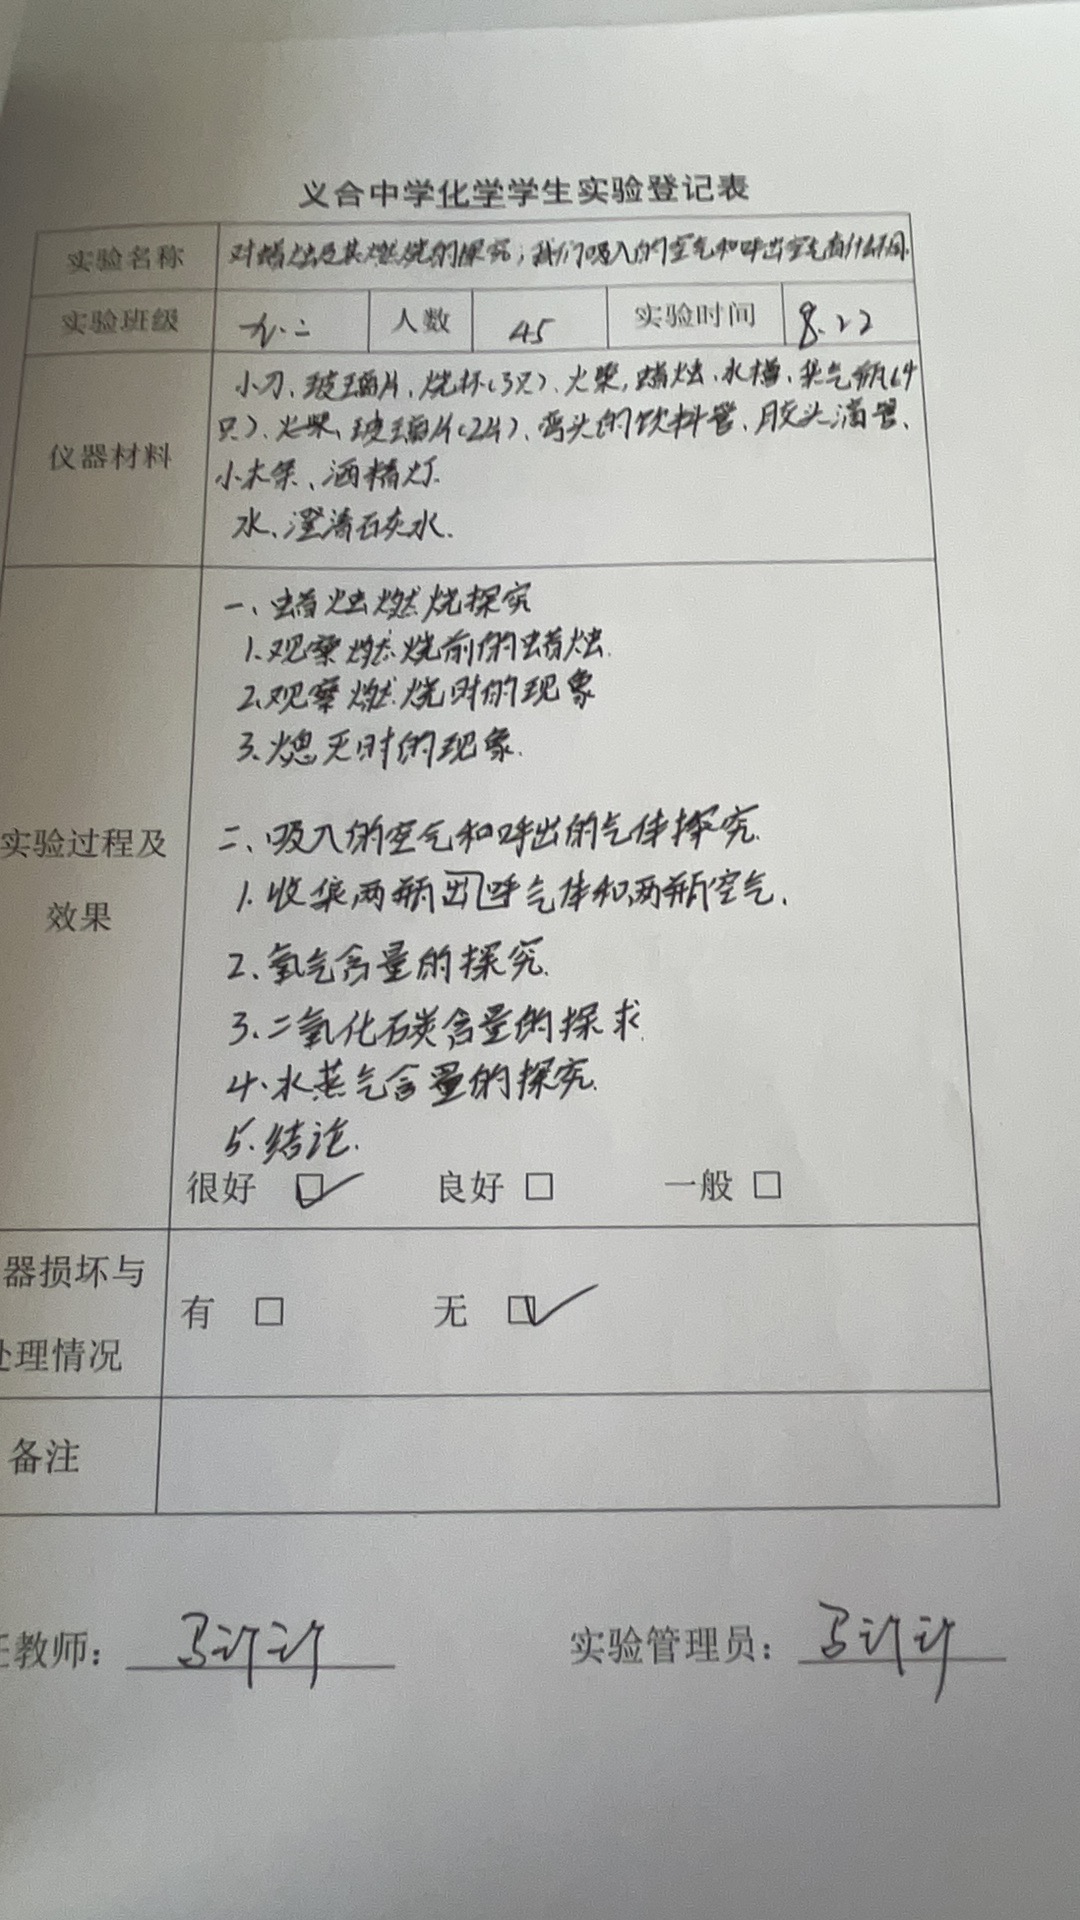 义合中学化学学生实验登记表
实验名称 对蜡烛及其燃烧的探究；我们吸入的空气和呼出空气有什么不同
实验班级 九.二 人数 45 实验时间 8.22
仪器材料
小刀、玻璃片、烧杯(3只)、火柴，蜡烛、水槽、集气瓶(4
只)、火柴、玻璃片(2片)、弯头的饮料管、胶头滴管、
小木条、酒精灯.
水、澄清石灰水.
实验过程及
效果
一、蜡烛燃烧探究
1.观察燃烧前的蜡烛.
2.观察燃烧时的现象
3.熄灭时的现象.
二、吸入的空气和呼出的气体探究.
1.收集两瓶出呼气体和两瓶空气.
2.氧气含量的探究.
3.二氧化碳含量的探求
4.水蒸气含量的探究.
5.结论.
很好 ☑ 良好 □ 一般 □
器损坏与
处理情况
有 □ 无 ☑
备注
任教师： 马许许 实验管理员： 马许许